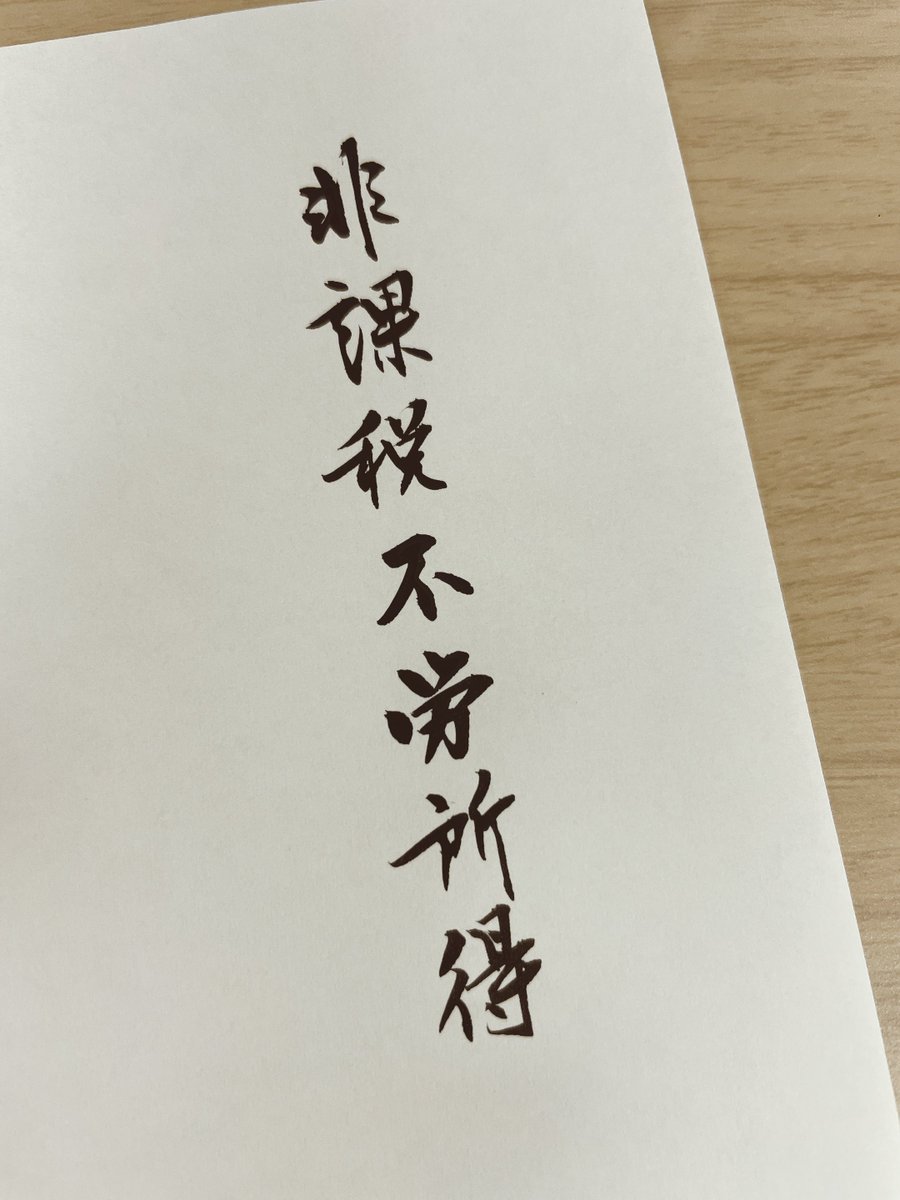 非課税不労所得